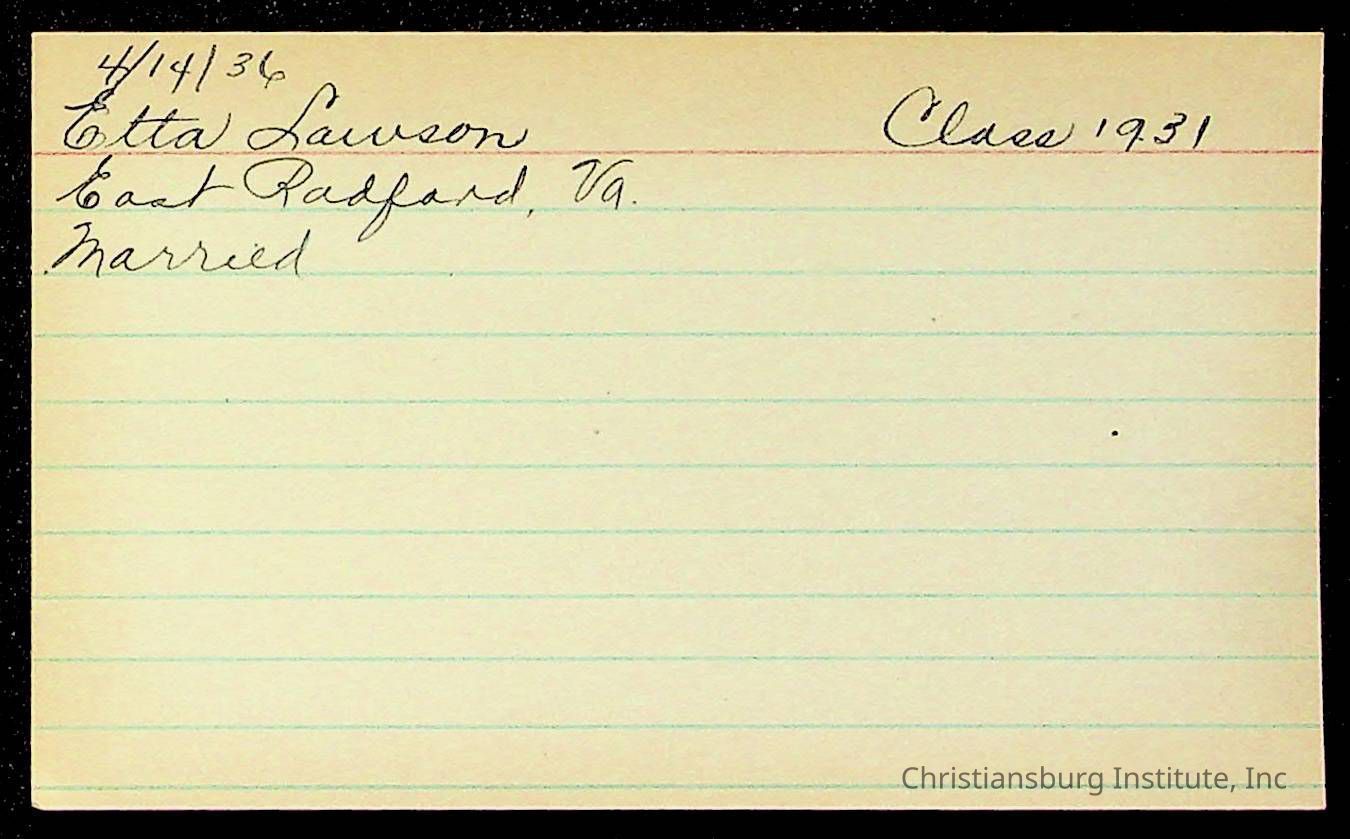 4/14/36
Etta Lawson Class 1931
East Radford, Va.
Married
Christiansburg Institute, Inc